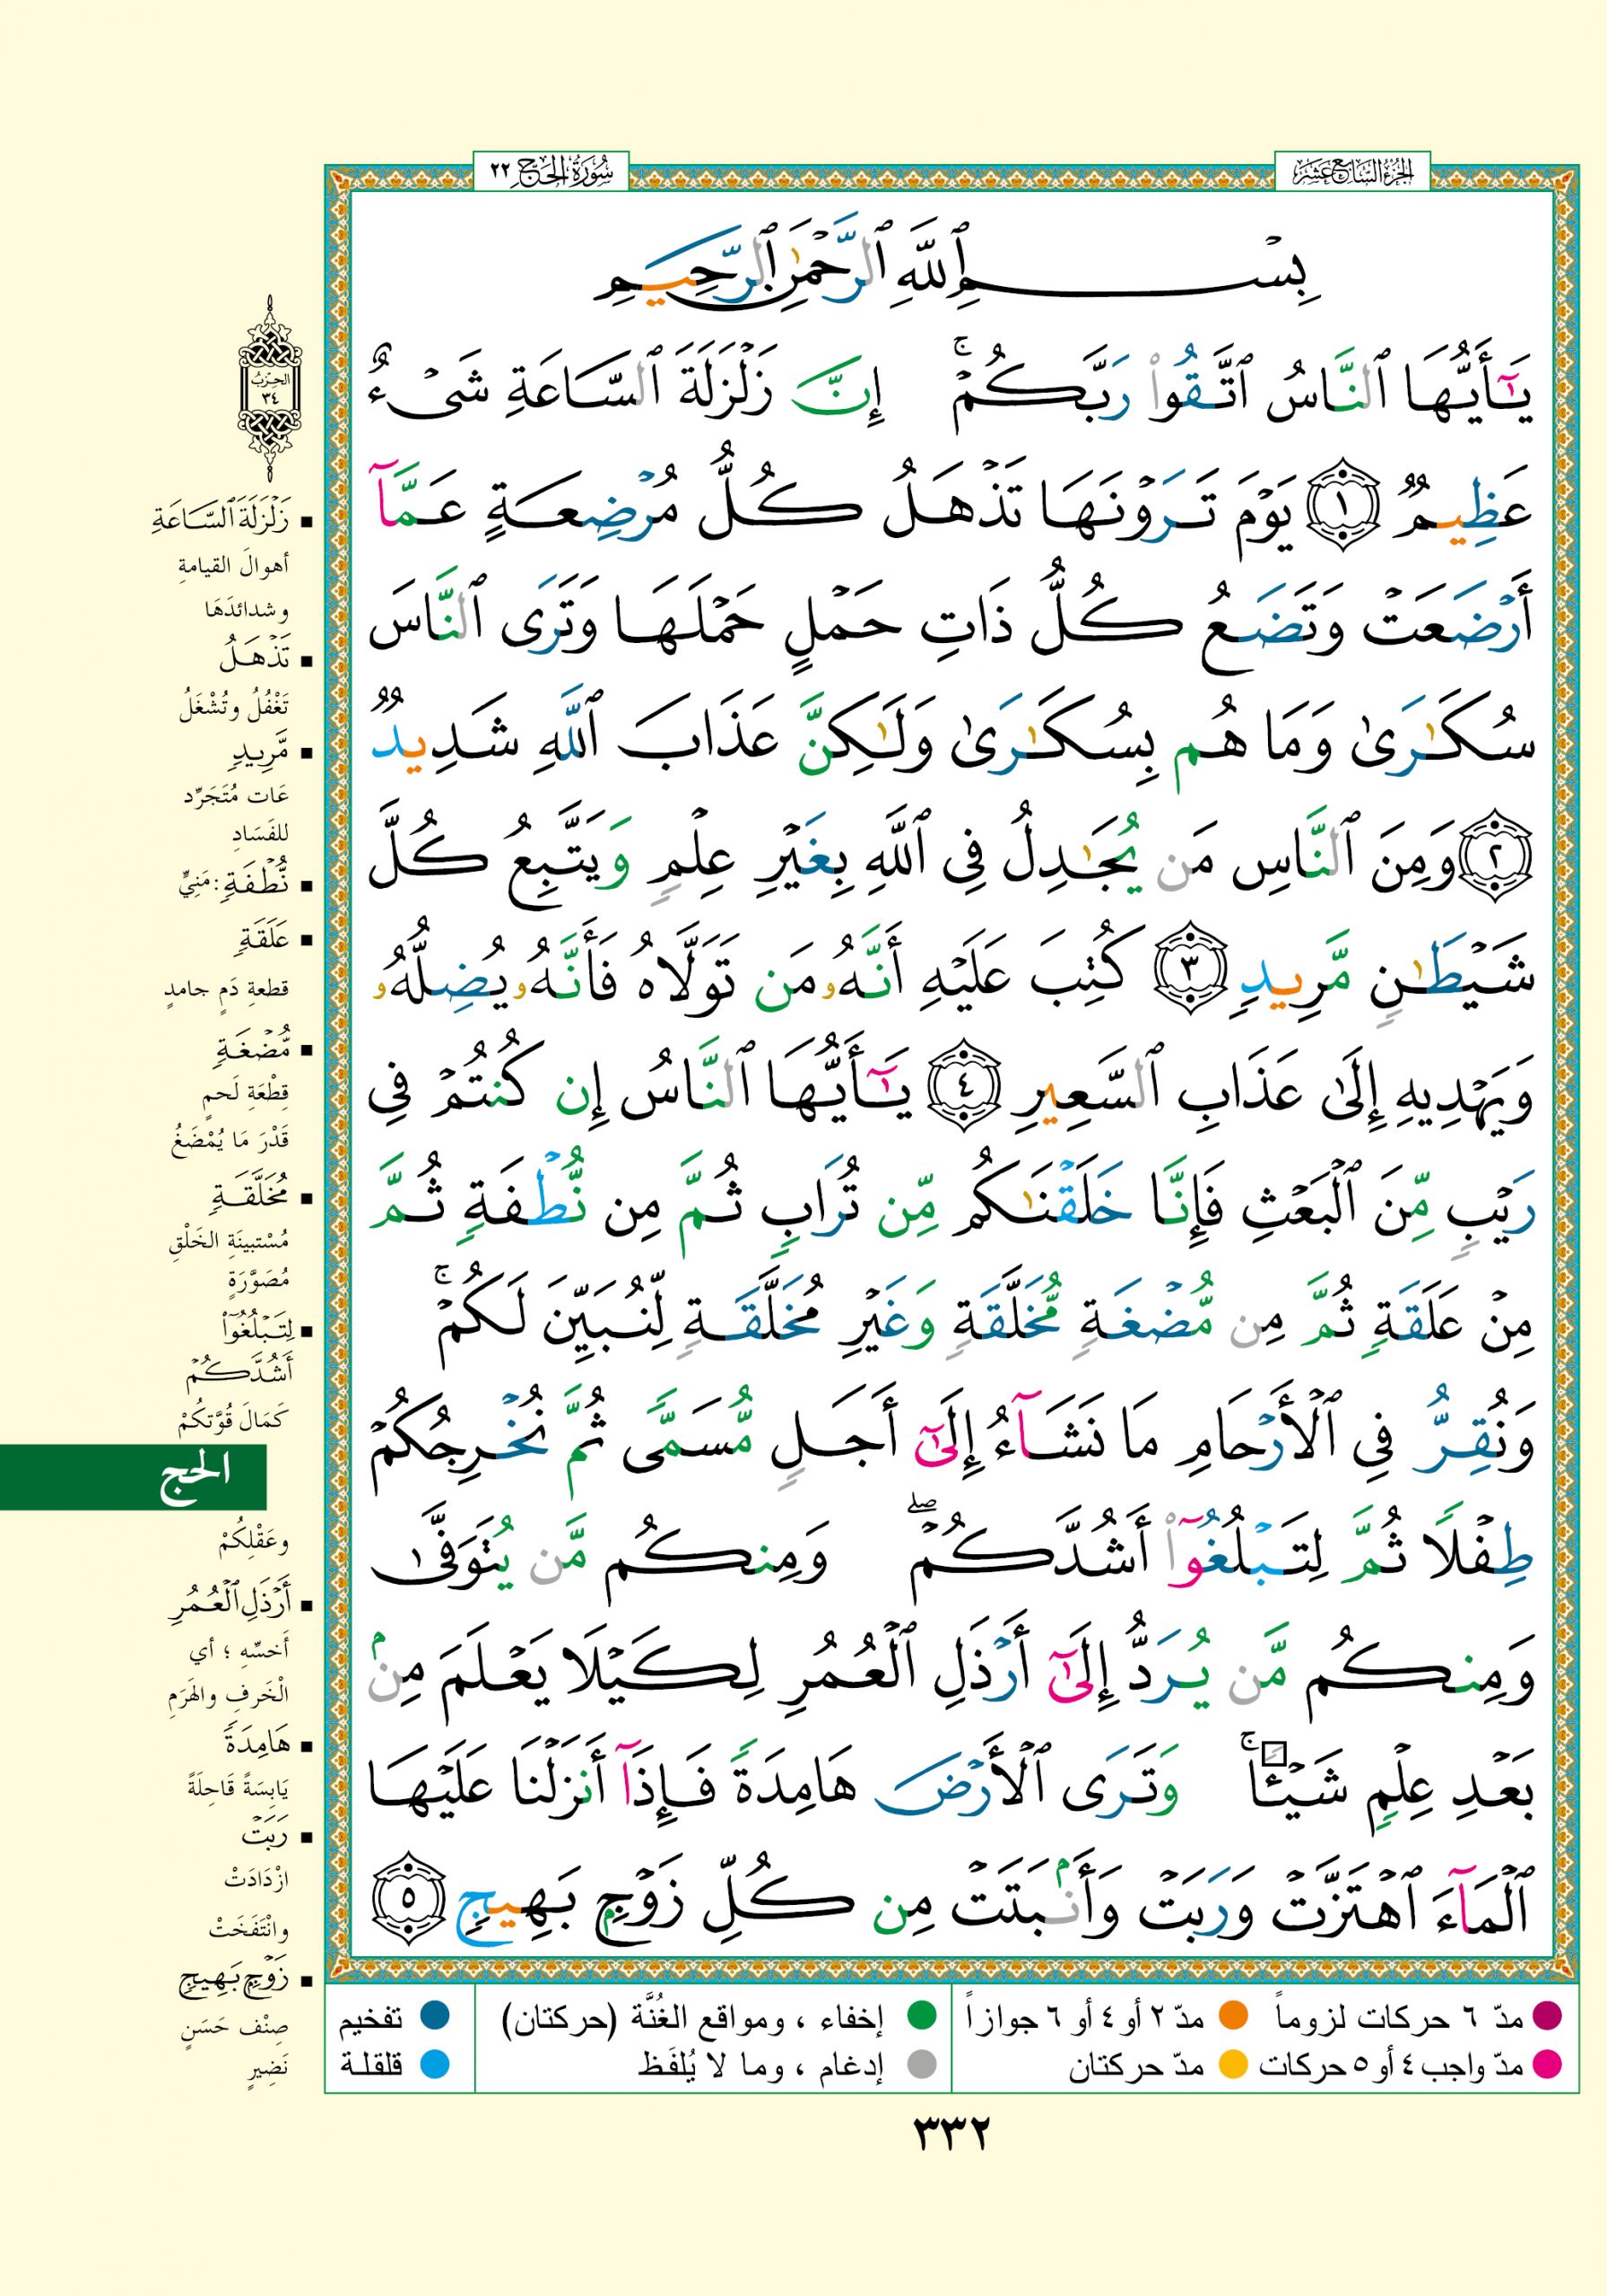 الجزء السابع عشر
سورة الحج ٢٢
بِسْمِ ٱللَّهِ ٱلرَّحْمَٰنِ ٱلرَّحِيمِ
يَٰٓأَيُّهَا ٱلنَّاسُ ٱتَّقُوا۟ رَبَّكُمْ ۚ إِنَّ زَلْزَلَةَ ٱلسَّاعَةِ شَىْءٌ
عَظِيمٌ ١ يَوْمَ تَرَوْنَهَا تَذْهَلُ كُلُّ مُرْضِعَةٍ عَمَّآ
أَرْضَعَتْ وَتَضَعُ كُلُّ ذَاتِ حَمْلٍ حَمْلَهَا وَتَرَى ٱلنَّاسَ
سُكَٰرَىٰ وَمَا هُم بِسُكَٰرَىٰ وَلَٰكِنَّ عَذَابَ ٱللَّهِ شَدِيدٌ
٢ وَمِنَ ٱلنَّاسِ مَن يُجَٰدِلُ فِى ٱللَّهِ بِغَيْرِ عِلْمٍ وَيَتَّبِعُ كُلَّ
شَيْطَٰنٍ مَّرِيدٍ ٣ كُتِبَ عَلَيْهِ أَنَّهُۥ مَن تَوَلَّاهُ فَأَنَّهُۥ يُضِلُّهُۥ
وَيَهْدِيهِ إِلَىٰ عَذَابِ ٱلسَّعِيرِ ٤ يَٰٓأَيُّهَا ٱلنَّاسُ إِن كُنتُمْ فِى
رَيْبٍ مِّنَ ٱلْبَعْثِ فَإِنَّا خَلَقْنَٰكُم مِّن تُرَابٍ ثُمَّ مِن نُّطْفَةٍ ثُمَّ
مِنْ عَلَقَةٍ ثُمَّ مِن مُّضْغَةٍ مُّخَلَّقَةٍ وَغَيْرِ مُخَلَّقَةٍ لِّنُبَيِّنَ لَكُمْ ۚ
وَنُقِرُّ فِى ٱلْأَرْحَامِ مَا نَشَآءُ إِلَىٰٓ أَجَلٍ مُّسَمًّى ثُمَّ نُخْرِجُكُمْ
طِفْلًا ثُمَّ لِتَبْلُغُوٓا۟ أَشُدَّكُمْ ۖ وَمِنكُم مَّن يُتَوَفَّىٰ
وَمِنكُم مَّن يُرَدُّ إِلَىٰٓ أَرْذَلِ ٱلْعُمُرِ لِكَيْلَا يَعْلَمَ مِنۢ
بَعْدِ عِلْمٍ شَيْـًٔا ۚ وَتَرَى ٱلْأَرْضَ هَامِدَةً فَإِذَآ أَنزَلْنَا عَلَيْهَا
ٱلْمَآءَ ٱهْتَزَّتْ وَرَبَتْ وَأَنۢبَتَتْ مِن كُلِّ زَوْجٍۭ بَهِيجٍ ٥
الحزب
٣٤
زَلْزَلَةَ ٱلسَّاعَةِ
أهوالَ القيامةِ
وشدائدَهَا
تَذْهَلُ
تَغْفُلُ وتُشْغَلُ
مَّرِيدٍ
عَات مُتَجَرِّد
للفَسَادِ
نُّطْفَةٍ: مَنِيٍّ
عَلَقَةٍ
قطعةِ دَمٍ جامدٍ
مُّضْغَةٍ
قِطْعَةِ لَحمٍ
قَدْرَ مَا يُمْضَغُ
مُّخَلَّقَةٍ
مُسْتبينَةِ الخَلْقِ
مُصَوَّرَةٍ
لِتَبْلُغُوٓا۟
أَشُدَّكُمْ
كَمَالَ قُوَّتكُمْ
الحج
وعَقْلِكُمْ
أَرْذَلِ ٱلْعُمُرِ
أَخسِّهِ ؛ أي
الْخَرفِ والهَرَمِ
هَامِدَةً
يَابِسَةً قَاحِلَةً
رَبَتْ
ازْدَادَتْ
وانْتَفَخَتْ
زَوْجٍۭ بَهِيجٍ
صِنْف حَسَنٍ
نَضِيرٍ
مدّ ٦ حركات لزوماً مدّ ٢ أو ٤ أو ٦ جوازاً إخفاء ، ومواقع الغُنَّة (حركتان) تفخيم
مدّ واجب ٤ أو ٥ حركات مدّ حركتان إدغام ، وما لا يُلفَظ قلقلة
٣٣٢